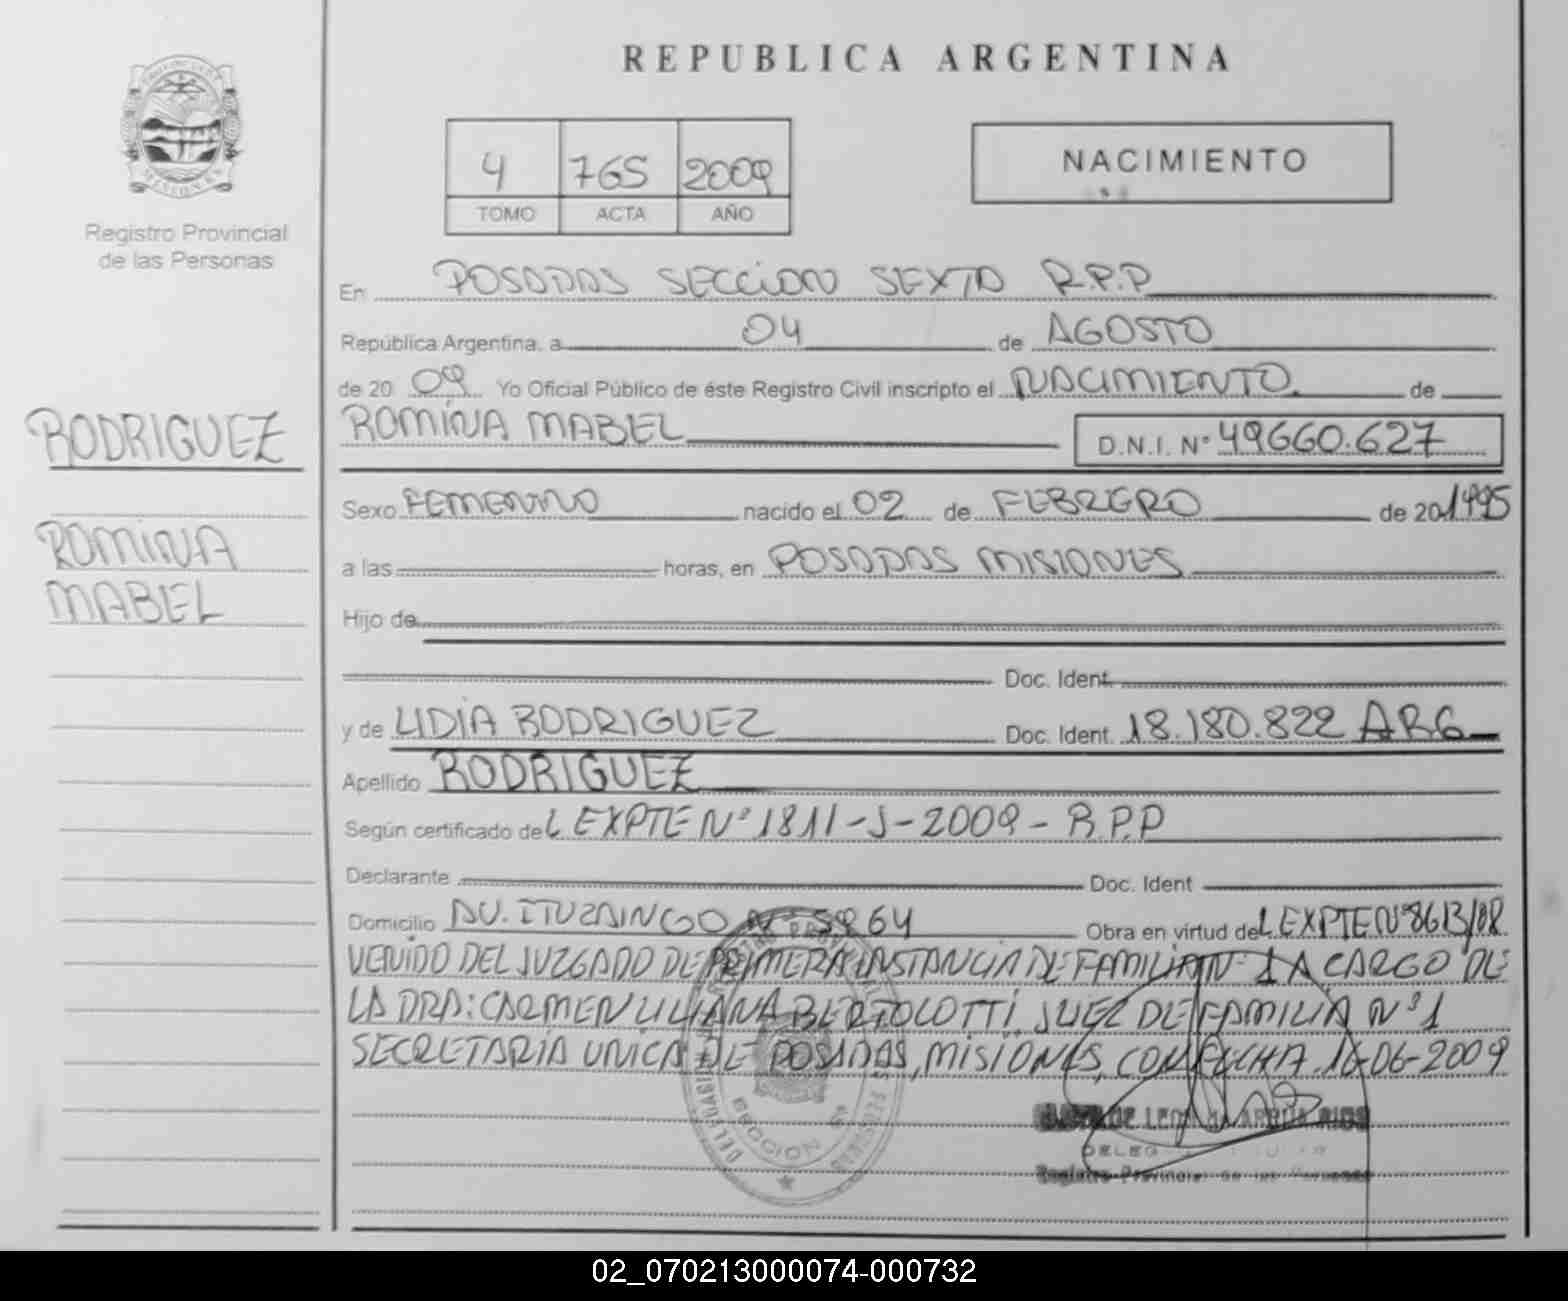 REPUBLICA ARGENTINA
4 765 2009
TOMO ACTA AÑO
NACIMIENTO
MISIONES
Registro Provincial
de las Personas
En POSADAS SECCION SEXTA R.P.P
República Argentina, a 04 de AGOSTO
de 20 09 Yo Oficial Público de éste Registro Civil inscripto el NACIMIENTO. de
ROMINA MABEL D.N.I. N° 49660.627
RODRIGUEZ
ROMINA
MABEL
Sexo FEMENINO nacido el 02 de FEBRERO de 20 1995
a las horas, en POSADAS MISIONES
Hijo de
Doc. Ident.
y de LIDIA RODRIGUEZ Doc. Ident. 18.180.822 ARG
Apellido RODRIGUEZ
Según certificado de L EXPTE N° 1811-J-2009-R.P.P
Declarante Doc. Ident
Domicilio AV. ITUZAINGO N° 5864 Obra en virtud de L EXPTE N° 8613/08
VENIDO DEL JUZGADO DE PRIMERA INSTANCIA DE FAMILIA N° 1 A CARGO DE
LA DRA: CARMEN LILIANA BERTOLOTTI, JUEZ DE FAMILIA N° 1
SECRETARIA UNICA DE POSADAS, MISIONES, CON FECHA 16-06-2009
SECCION 6ª
Registro Provincial de las Personas
02_070213000074-000732